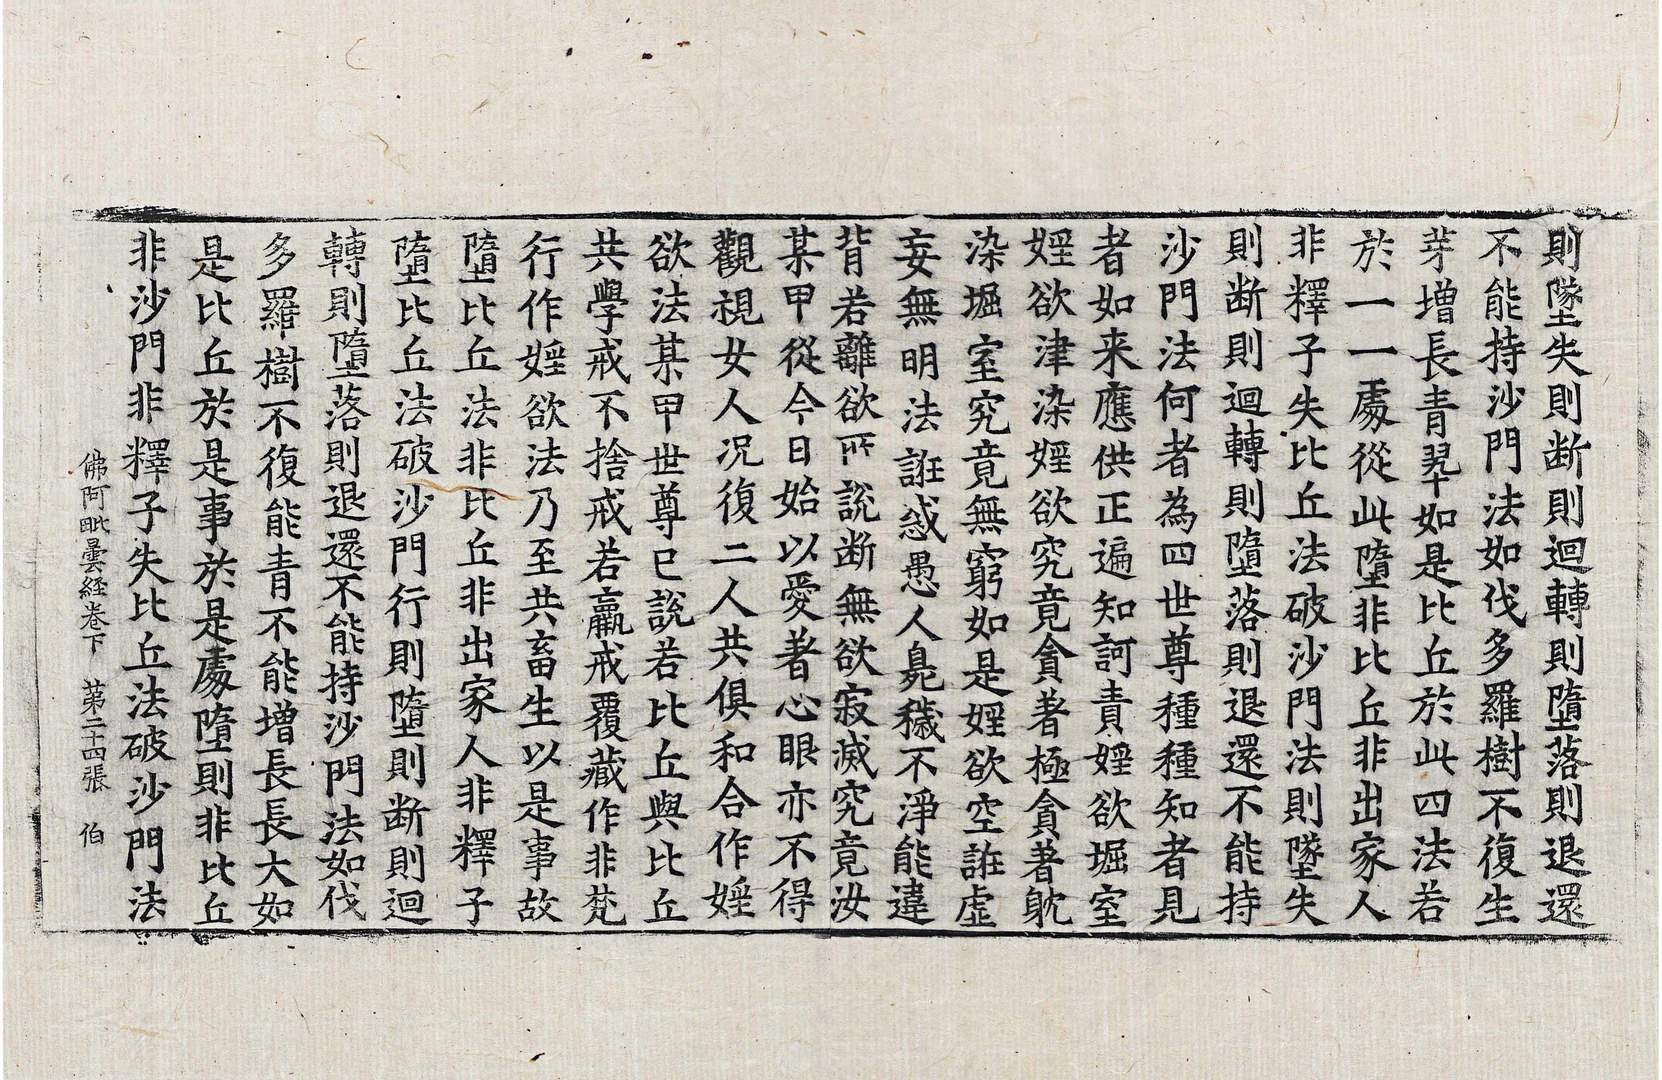 則墜失則断則迴轉則墮落則退還
不能持沙門法如伐多羅樹不復生
芽增長青翠如是比丘於此四法若
於一一一處從此墮非比丘非出家人
非釋子失比丘法破沙門法則墜失
則断則迴轉則墮落則退還不能持
沙門法何者為四世尊種種知者見
者如来應供正遍知訶責婬欲堀室
婬欲津染婬欲究竟貪著極貪著躭
染堀室究竟無窮如是婬欲空誑虛
妄無明法誑惑愚人臭穢不淨能違
背若離欲所說断無欲寂滅究竟汝
某甲從今日始以愛著心眼亦不得
觀視女人況復二人共俱和合作婬
欲法某甲世尊已說若比丘與比丘
共學戒不捨戒若羸戒覆藏作非梵
行作婬欲法乃至共畜生以是事故
墮比丘法非比丘非出家人非釋子
墮比丘法破沙門行則墮則断則迴
轉則墮落則退還不能持沙門法如伐
多羅樹不復能青不能增長長大如
是比丘於是事於是處墮則非比丘
非沙門非釋子失比丘法破沙門法
佛阿毗曇経卷下 第二十四張 伯